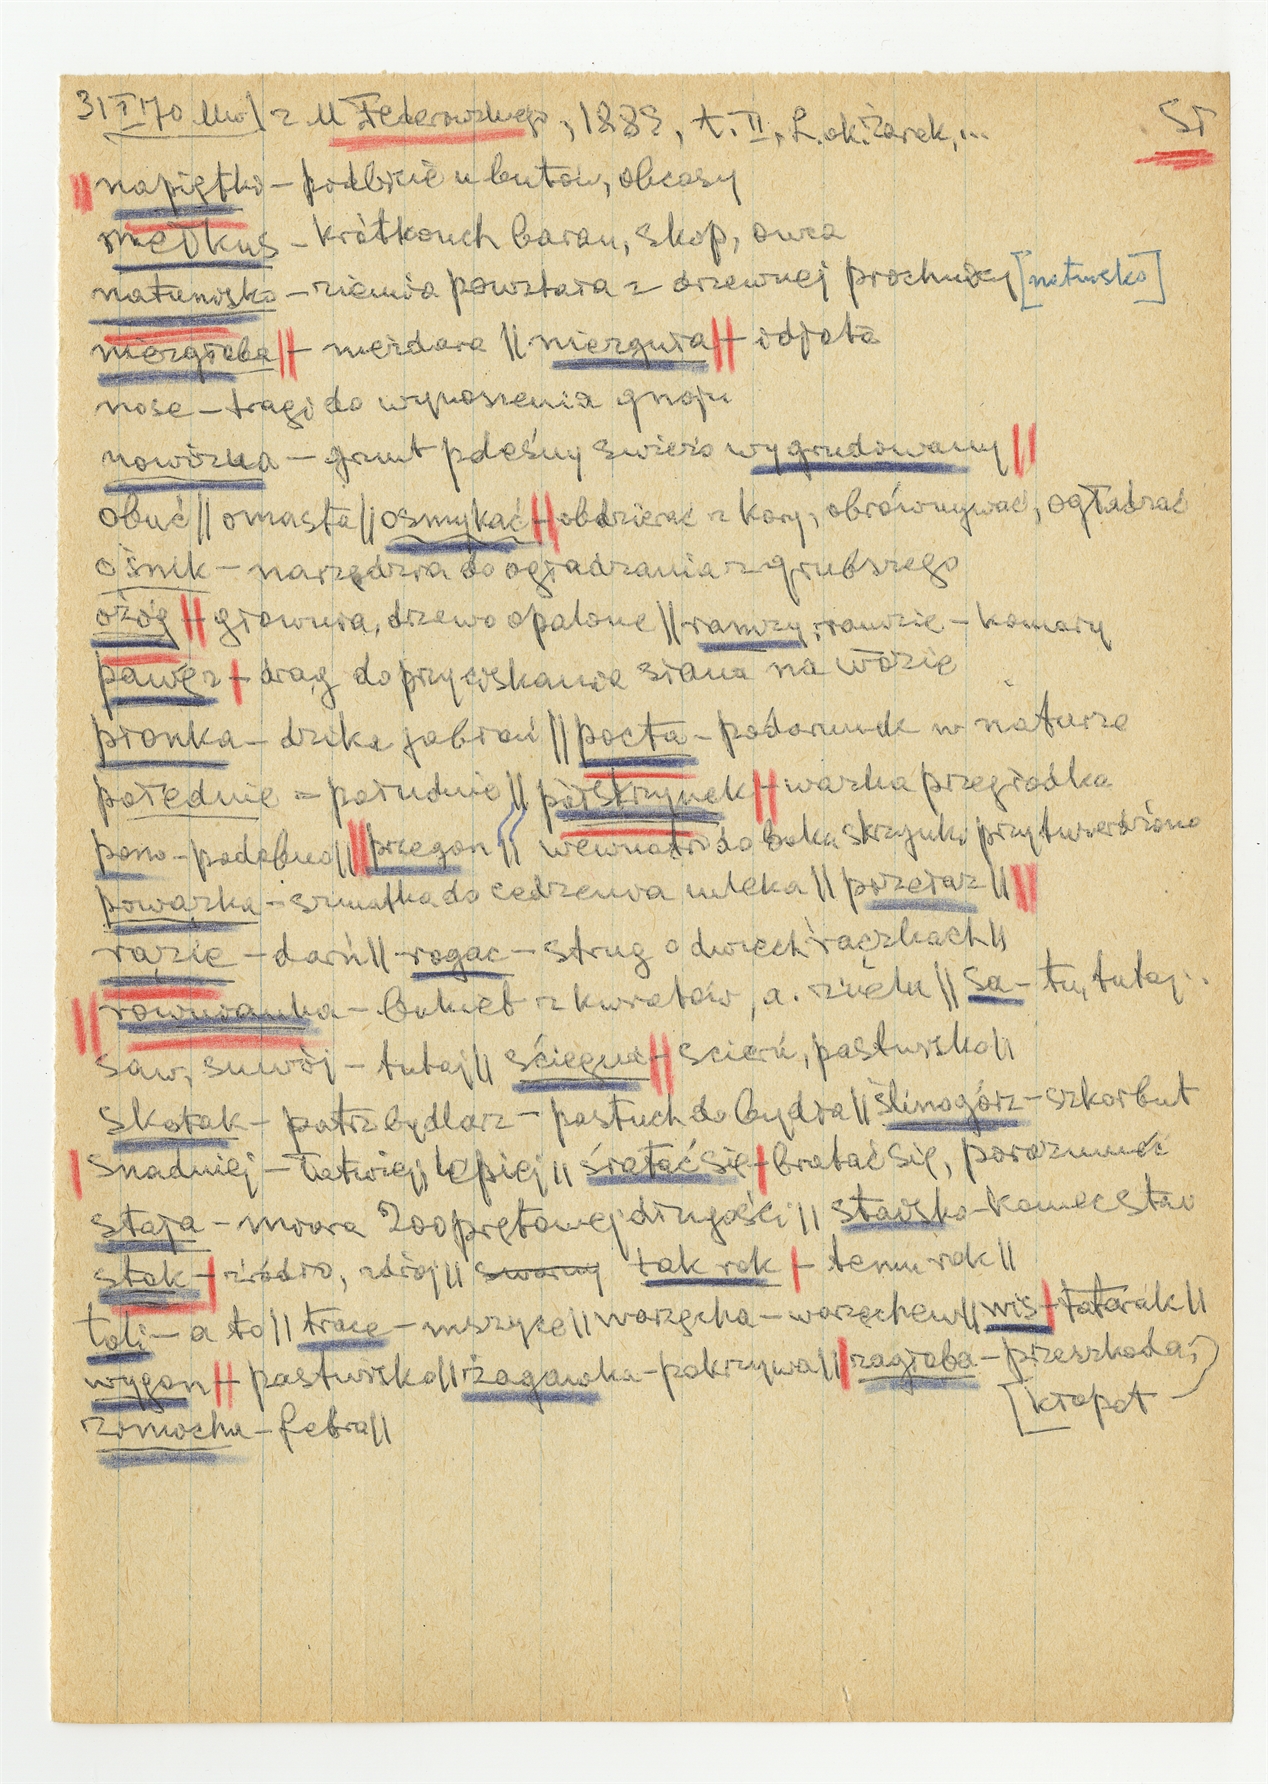 31 I 70 z M Federowskiego, 1889, t. II, L. ok. Żarek,...
napiętki – podbicie u butów, obcasy
mejkus – krótkouch baran, skop, owca
natunisko – ziemia powstała z drzewnej próchnicy [
niezgłeba || – niezdara || niezguła || – idjota
nose – tragi do wynoszenia gnoju
nowizna – grunt pleśny świeżo wygrudowany ||
obuć || omasta || osmykać || – obdzierać z kory, obrównywać, ogładzać
ośnik – narzędzia do ogładzania z grubszego
ożóg || – głownia, drzewo opalone || ramzy, ramzie – komary
pawęz | – drąg do przyciskania siana na wozie
płonka – dzika jabłoń || pocta – podarunek w naturze
połednie = południe || półstrzynek || – wązka przegródka
pono – podobno || przegon || wewnątrz do boku skrzynki przytwierdzona
powązka – szmatka do cedzenia mleka || przełaz ||
rązie – darń || rogac – strug o dwóch rączkach ||
równianka – bukiet z kwiatów, a. zieła || sa – tu, tutaj..
saw, suwój – tutaj || ściegna || – ścierń, pastwisko ||
skotak – patrz bydlarz – pastuch do bydła || ślinogórz – szkorbut
snadniej – łatwiej, lepiej || śratać się | – bratać się, porozumieć
staja – miara 200 prętowej długości || stawisko – koniec staw
stok | – źródło, zdrój || swarny tak rok | – temu rok ||
toli – a to || trace – mszyce || warzęcha – warzechew || wis | – tatarak ||
wygon || – pastwisko || żagawka – pokrzywa || zagłoba – przeszkoda,
[kłopot
zomocha – febra ||